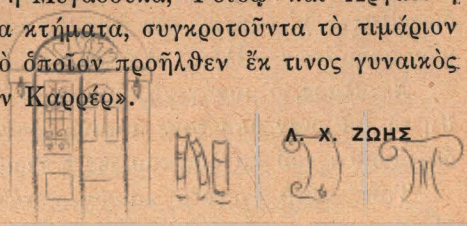 α κτήματα, συγκροτοῦντα τὸ τιμάριον
ὸ ὁποῖον προῆλθεν ἔκ τινος γυναικὸς
ν Καρρέρ».
Λ. Χ. ΖΩΗΣ